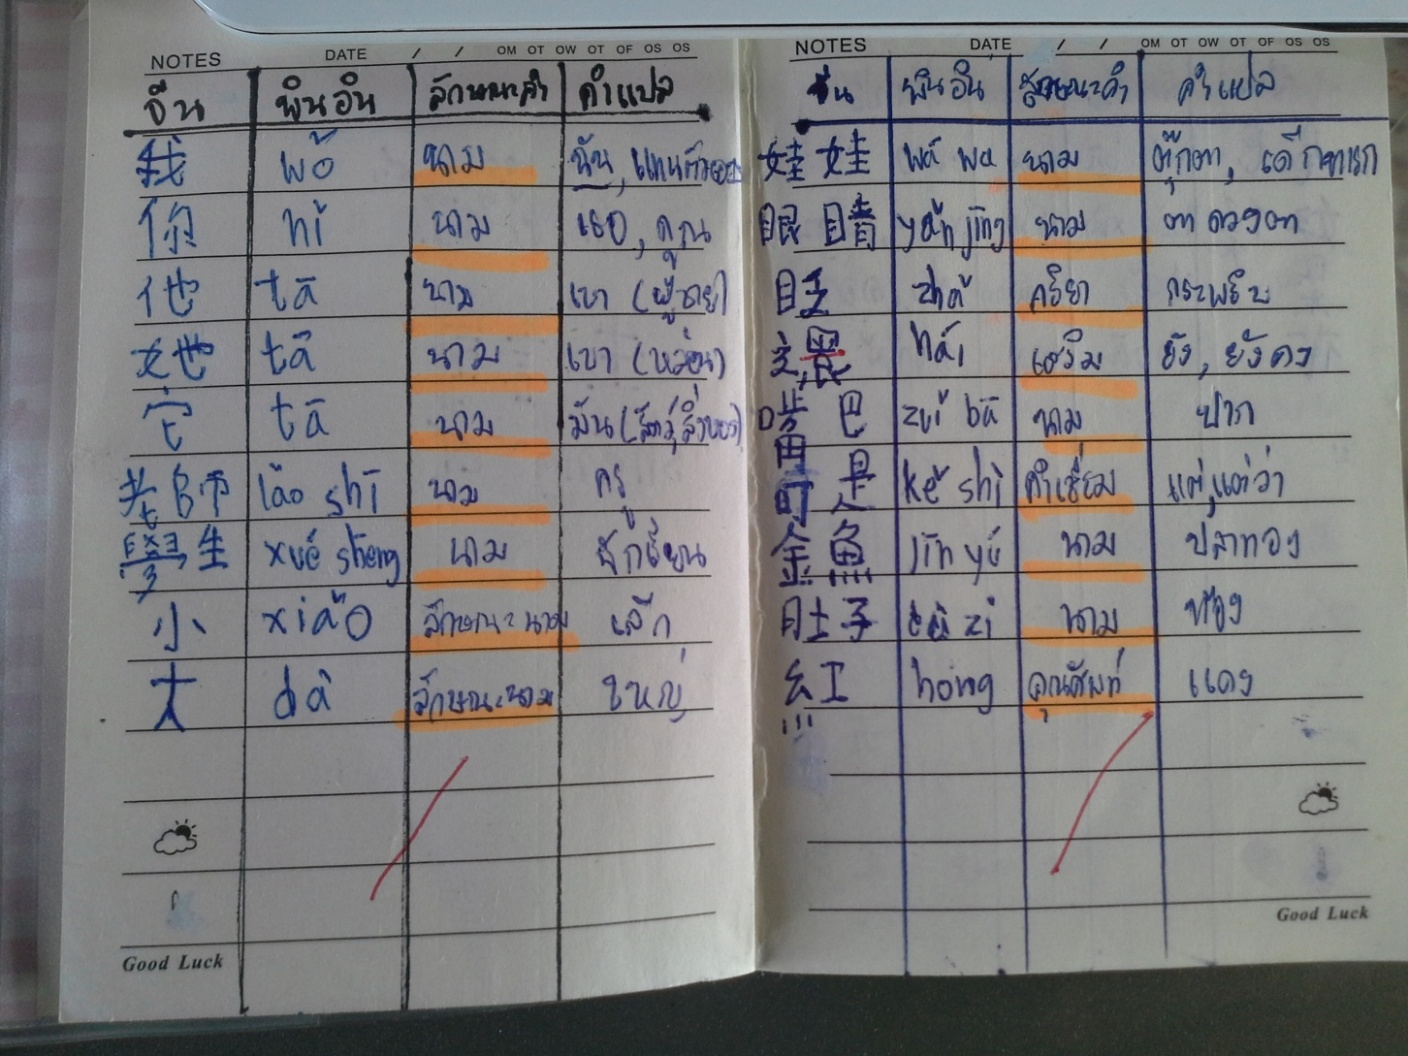 NOTES DATE / / OM OT OW OT OF OS OS
จีน พินอิน ลักษณะคำ คำแปล
我 wǒ นาม ฉัน, แทนตัวเอง
你 nǐ นาม เธอ, คุณ
他 tā นาม เขา (ผู้ชาย)
她 tā นาม เขา (หล่อน)
它 tā นาม มัน (สัตว์,สิ่งของ)
老师 lǎo shī นาม ครู
學生 xué shēng นาม นักเรียน
小 xiǎo ลักษณะนาม เล็ก
大 dà ลักษณะนาม ใหญ่
Good Luck
NOTES DATE / / OM OT OW OT OF OS OS
จีน พินอิน ลักษณะคำ คำแปล
娃娃 wá wa นาม ตุ๊กตา, เด็กทารก
眼睛 yǎn jīng นาม ตา ดวงตา
zhǎ กริยา กระพริบ
hái เสริม ยัง, ยังคง
嘴巴 zuǐ bā นาม ปาก
可是 kě shì คำเชื่อม แต่,แต่ว่า
金魚 jīn yú นาม ปลาทอง
肚子 dù zi นาม ท้อง
紅 hóng คุณศัพท์ แดง
Good Luck